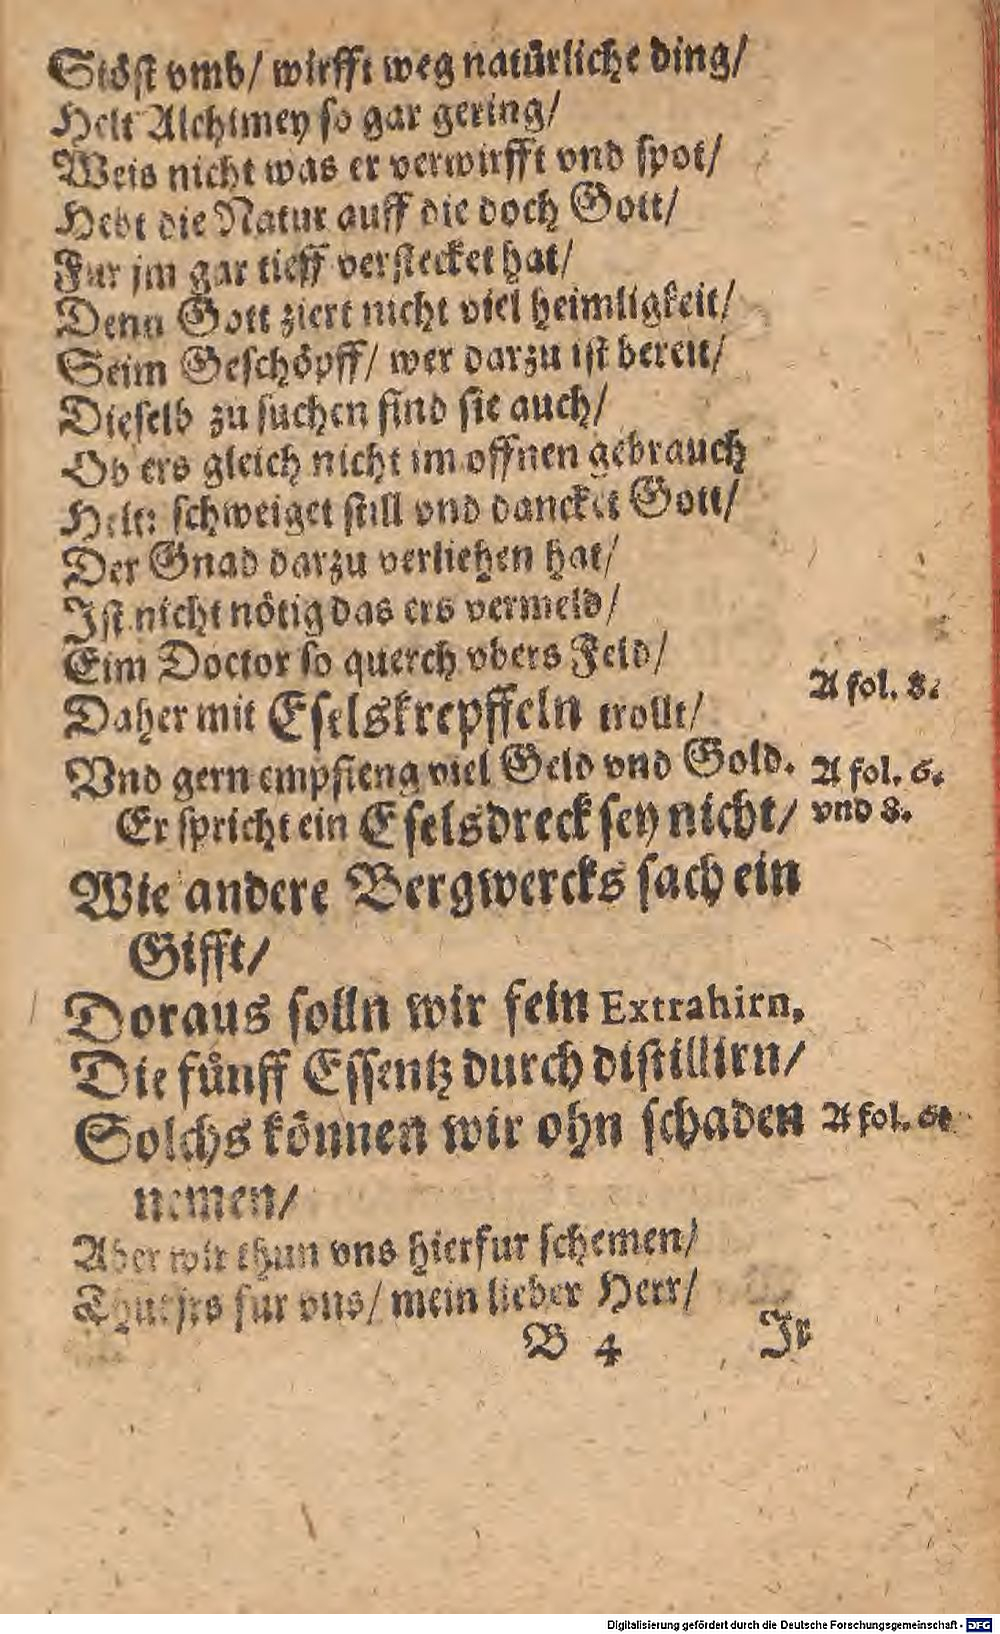 Stöst vmb/ wirfft weg natürliche ding/
Helt Alchimey so gar gering/
Weis nicht was er verwirfft vnd spot/
Hebt die Natur auff die doch Gott/
Fur jm gar tieff verstecket hat/
Denn Gott ziert nicht viel heimligkeit/
Seim Geschöpff/ wer darzu ist bereit/
Dieselb zu suchen find sie auch/
Ob ers gleich nicht im offnen gebrauch
Helt: schweiget still vnd dancket Gott/
Der Gnad darzu verliehen hat/
Ist nicht nötig das ers vermeld/
Eim Doctor so querch vbers Feld/
Daher mit Eselskrepffeln trollt/ A fol. 8.
Vnd gern empfieng viel Geld vnd Gold. A fol. 6.
Er spricht ein Eselsdreck sey nicht/ vnd 8.
Wie andere Bergwercks sach ein
Gifft/
Doraus solln wir fein Extrahirn,
Die fünff Essentz durch distillirn/
Solchs können wir ohn schaden A fol. 6.
nemen/
Aber wir thun vns hierfur schemen/
Thut jrs fur vns/ mein lieber Herr/
B 4 Ir
Digitalisierung gefördert durch die Deutsche Forschungsgemeinschaft - DFG